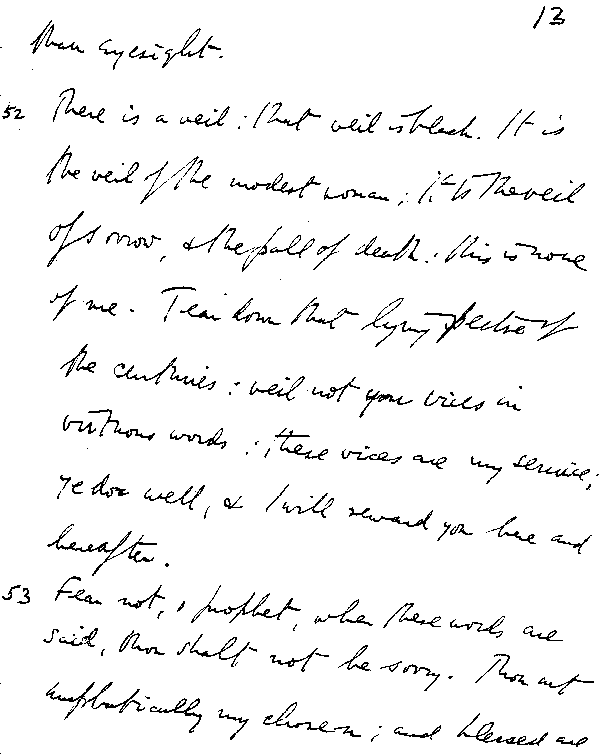 13
than eyesight.
52 There is a veil : that veil is black. It is
the veil of the modest woman ; it is the veil
of sorrow, & the pall of death : this is none
of me. Tear down that lying spectre of
the centuries : veil not your vices in
virtuous words : these vices are my service ;
ye do well, & I will reward you here and
hereafter.
53 Fear not, o prophet, when these words are
said, thou shalt not be sorry. Thou art
emphatically my chosen ; and blessed are